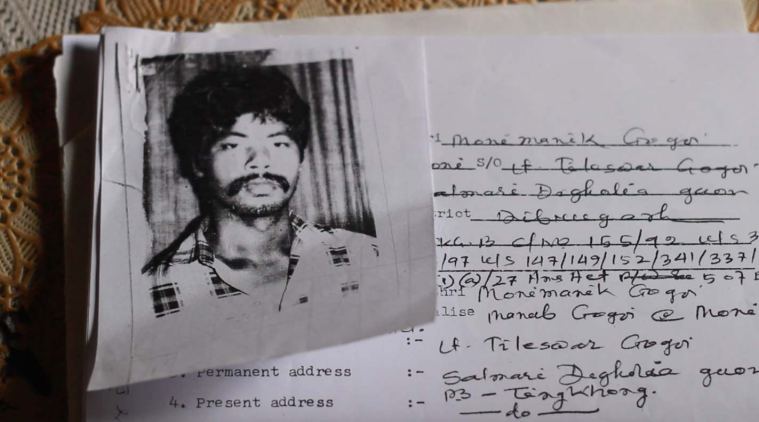 Monemanik Gogoi
oni S/O Lt. Tileswar Gogoi
almari Degholia gaon
rict Dibrugarh
C/No 155/92 u/s 3
/97 u/s 147/149/152/341/337/
(a)/27 Arms Act 5 of E
hri Monemanik Gogoi
alise Manab Gogoi @ Moné
:- Lt. Tileswar Gogoi
Permanent address :- Salmari Degholia gaon
PS - Tengkhong.
4. Present address :- do